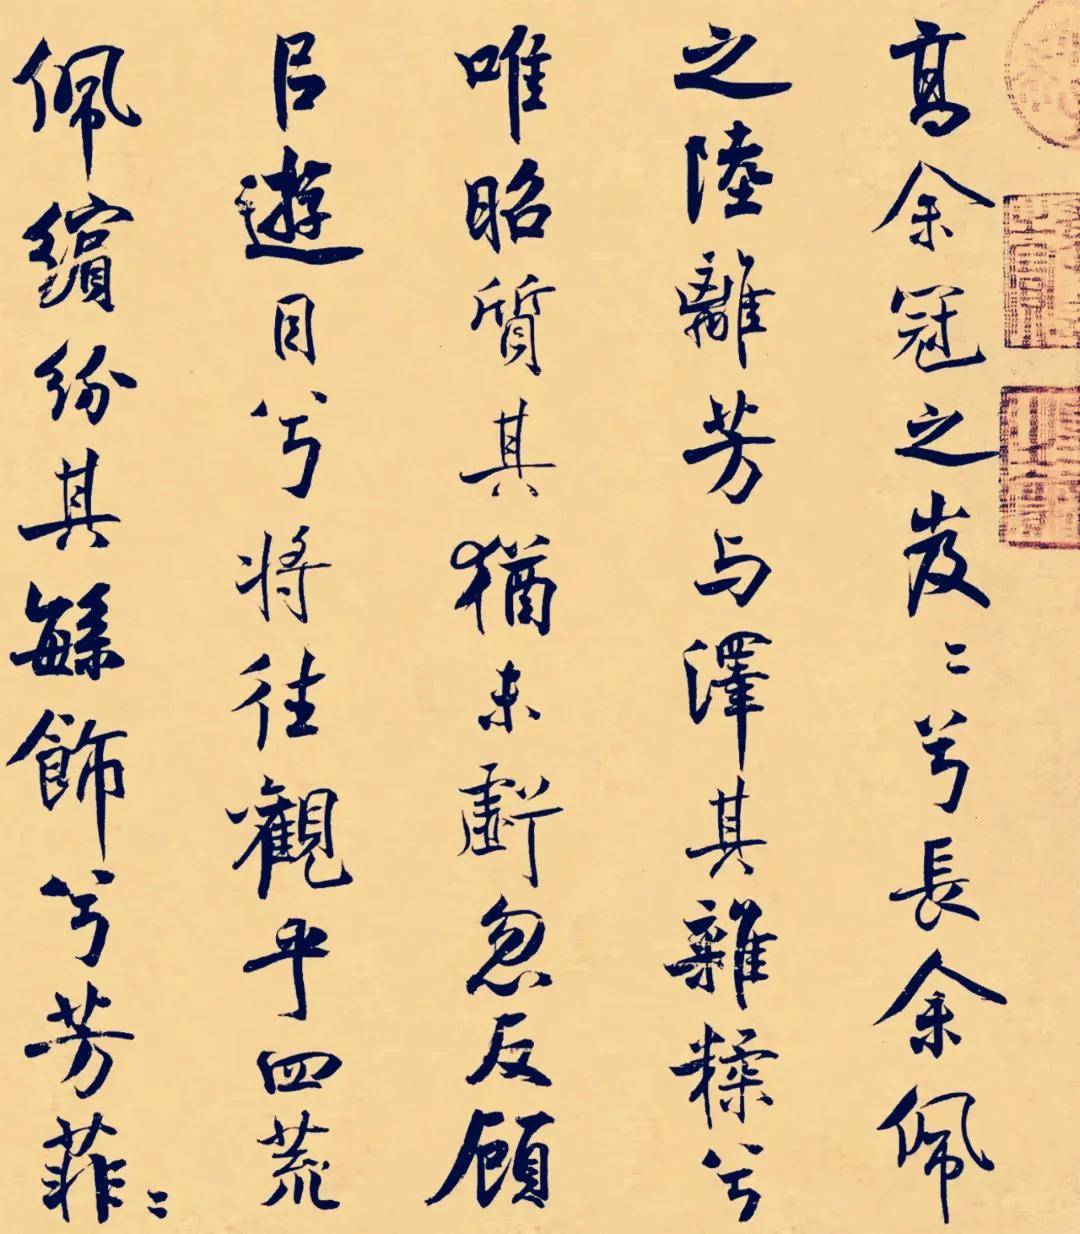 高余冠之岌〻兮長余佩
之陸離芳与澤其雜糅兮
唯昭質其猶未虧忽反顧
㠯遊目兮將往觀乎四荒
佩繽紛其緐飾兮芳菲〻